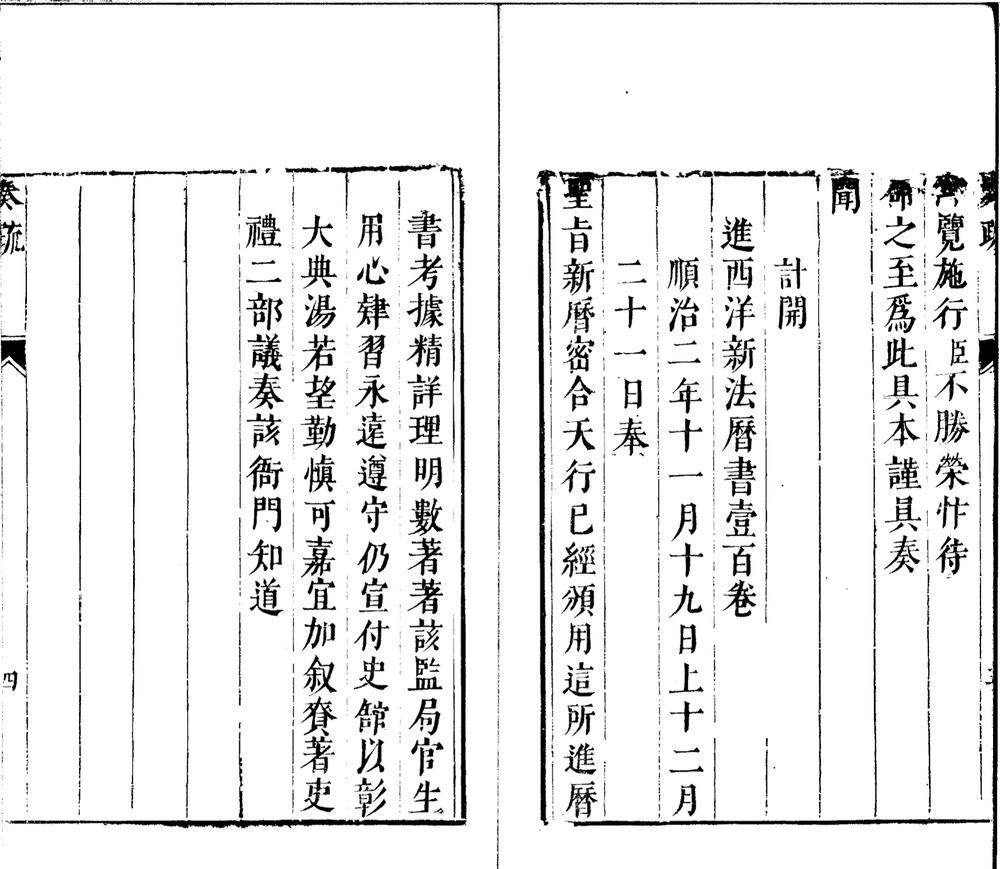 覽施行臣不勝榮怍待
命之至爲此具本謹具奏
聞
計開
進西洋新法曆書壹百卷
順治二年十一月十九日上十二月
二十一日奉
聖旨新曆密合天行已經頒用這所進曆
書考據精詳理明數著著該監局官生
用心肄習永遠遵守仍宣付史館以彰
大典湯若望勤慎可嘉宜加叙賚著吏
禮二部議奏該衙門知道
奏疏
四